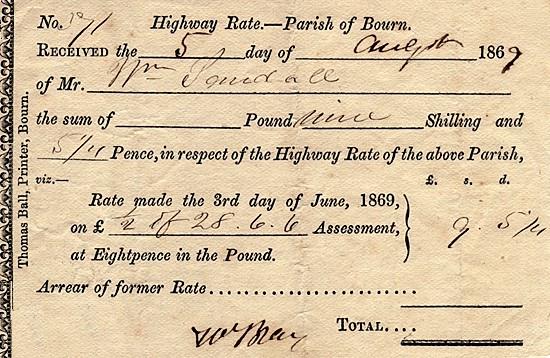 No. 171 Highway Rate.—Parish of Bourn.
RECEIVED the 5 day of August 1869
of Mr. Wm
the sum of Pound nine Shilling and
5 1/4 Pence, in respect of the Highway Rate of the above Parish,
viz.— £. s. d.
Rate made the 3rd day of June, 1869,
on £ 1/2 of 28. 6. 6 Assessment, 9. 5 1/4
at Eightpence in the Pound.
Arrear of former Rate
TOTAL....
Thomas Ball, Printer, Bourn.